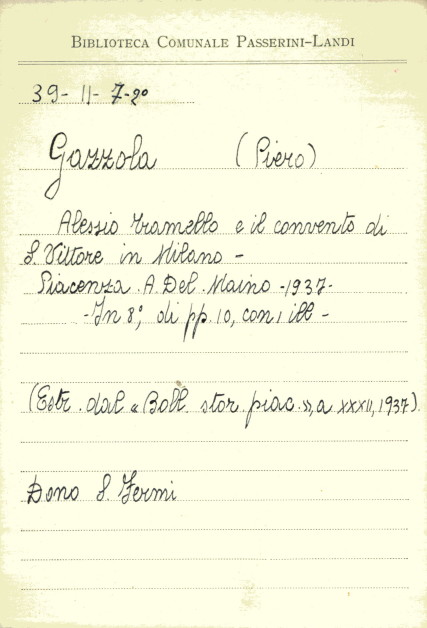 BIBLIOTECA COMUNALE PASSERINI-LANDI
39-11-7-2º
Gazzola (Piero)
Alessio Tramello e il convento di
S. Vittore in Milano -
Piacenza. A. Del. Maino -1937-
-In 8º, di pp. 10, con 1 ill -
(Estr. dal « Boll. stor. piac. », a XXXII, 1937).
Dono S. Fermi